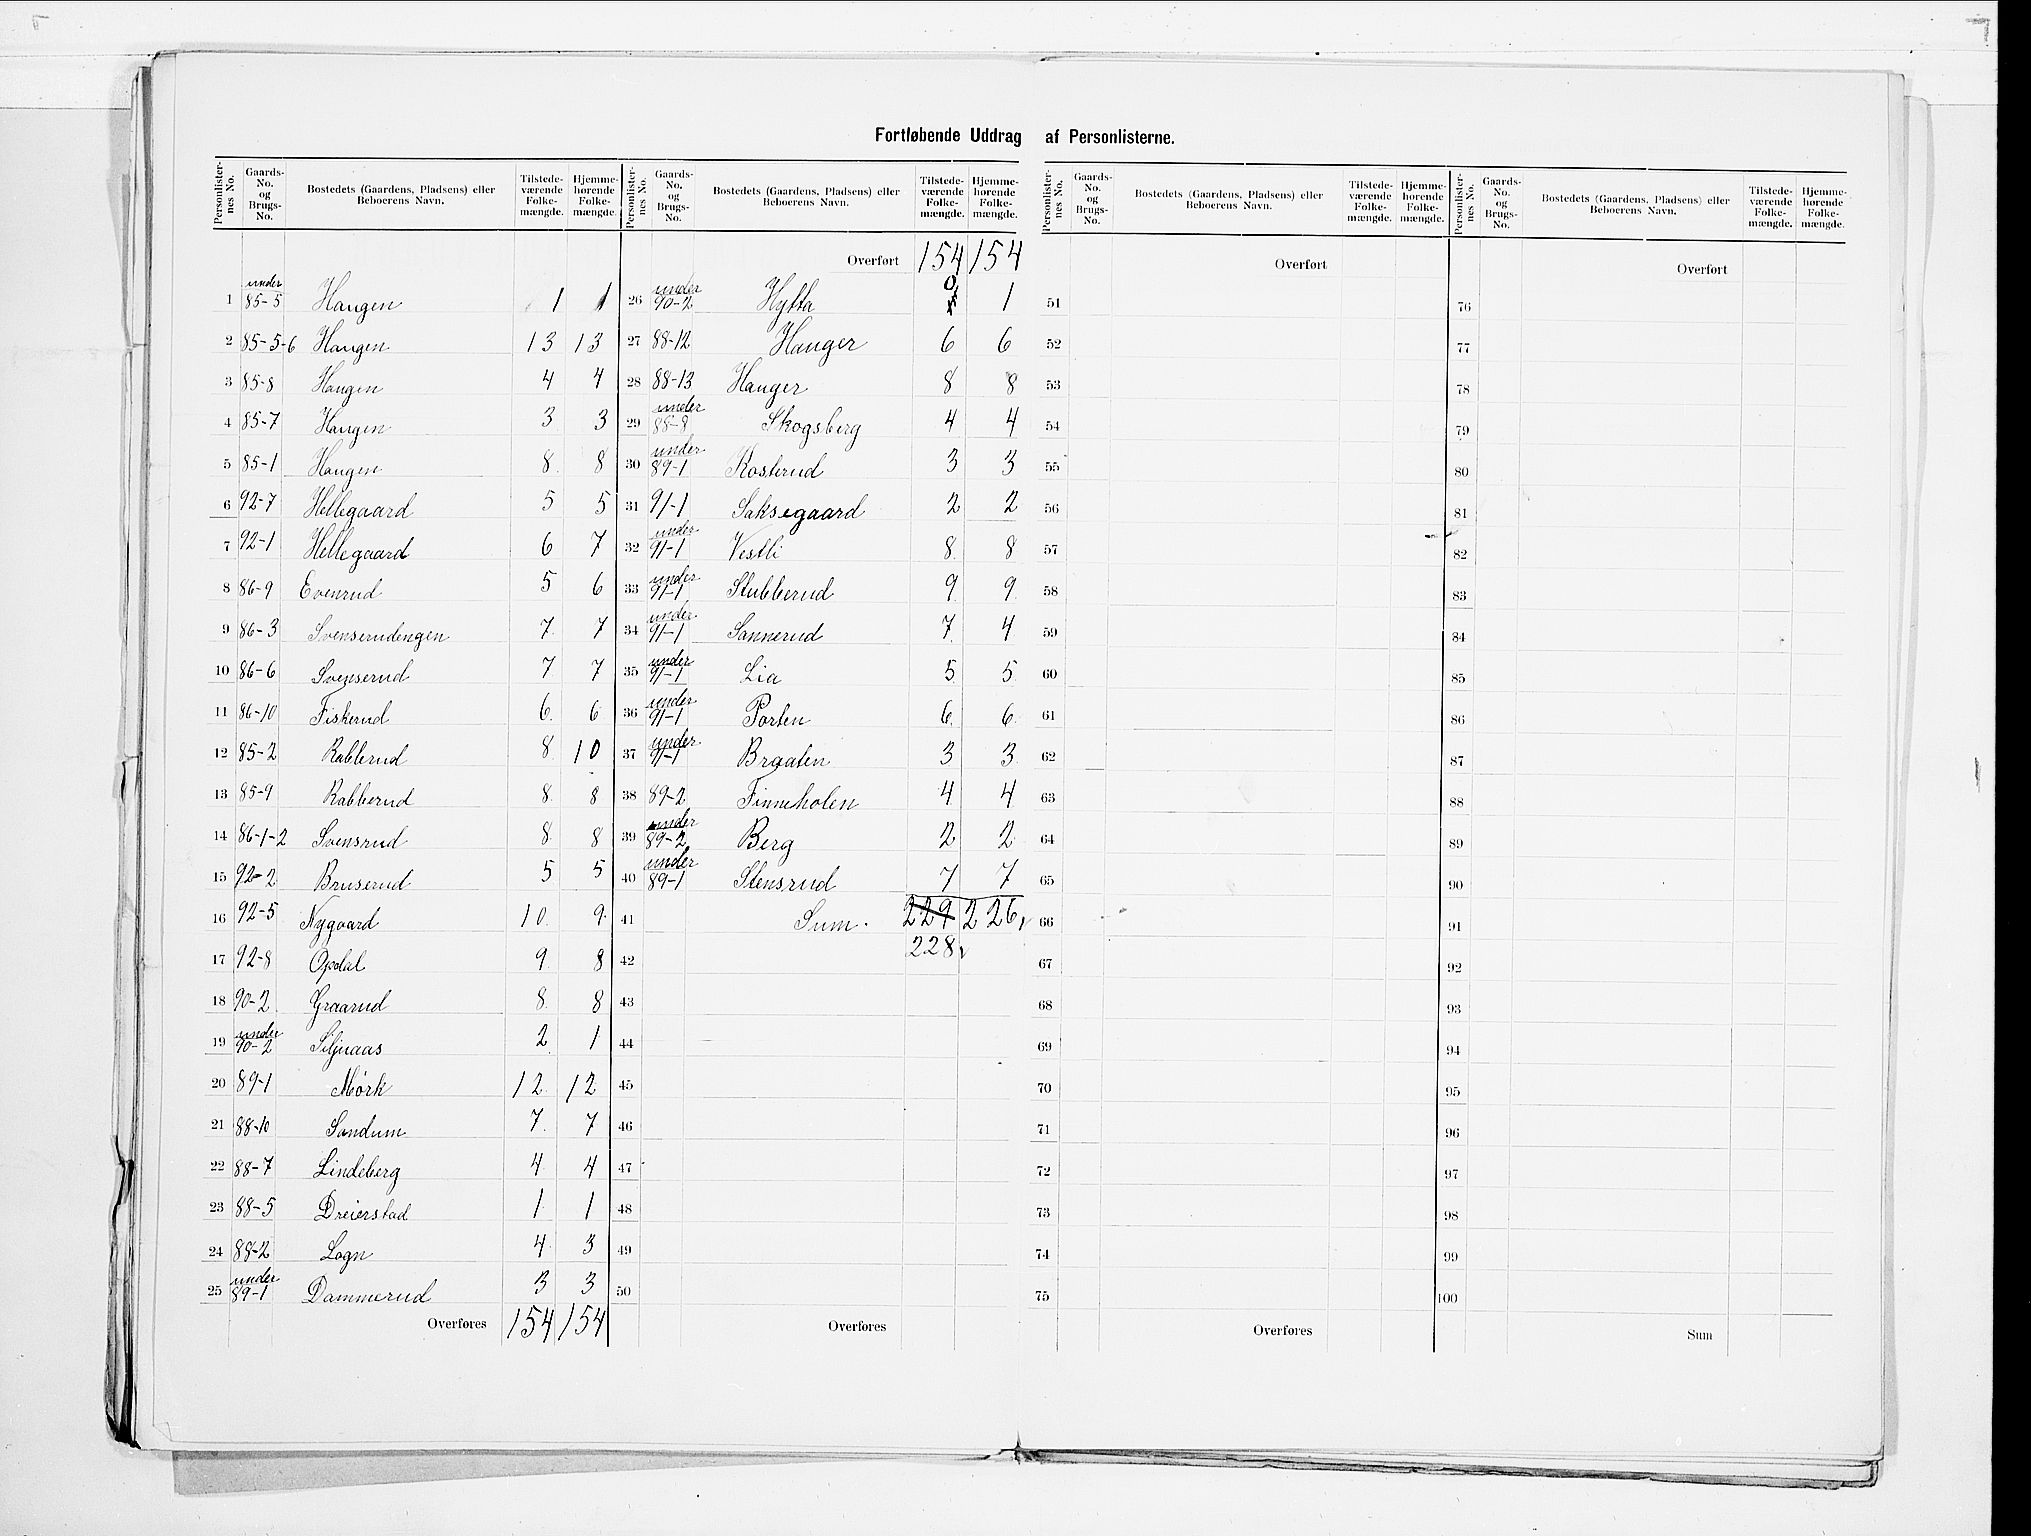 Fortløbende Uddrag af Personlisterne.
Personlister-nes No. Gaards-No. og Brugs-No. Bostedets (Gaardens, Pladsens) eller Beboerens Navn. Tilstede-værende Folke-mængde. Hjemme-hørende Folke-mængde.
1 under 85-5 Haugen 1 1
2 85-5-6 Haugen 13 13
3 85-8 Haugen 4 4
4 85-7 Haugen 3 3
5 85-1 Haugen 8 8
6 92-7 Hellegaard 5 5
7 92-1 Hellegaard 6 7
8 86-9 Evenrud 5 6
9 86-3 Svenserudengen 7 7
10 86-6 Svenserud 7 7
11 86-10 Fiskerud 6 6
12 85-2 Rabberud 8 10
13 85-9 Rabberud 8 8
14 86-1-2 Svensrud 8 8
15 92-2 Bruserud 5 5
16 92-5 Nygaard 10 9
17 92-8 Opdal 9 8
18 90-2 Graarud 8 8
19 under 90-2 Siljuaas 2 1
20 89-1 Mørk 12 12
21 88-10 Sandum 7 7
22 88-7 Lindeberg 4 4
23 88-5 Dreierstad 1 1
24 88-2 Logn 4 3
25 under 89-1 Dammerud 3 3
Overføres 154 154
Personlister-nes No. Gaards-No. og Brugs-No. Bostedets (Gaardens, Pladsens) eller Beboerens Navn. Tilstede-værende Folke-mængde. Hjemme-hørende Folke-mængde.
Overført 154 154
26 under 90-2 Hytta 0 1
27 88-12 Hauger 6 6
28 88-13 Hauger 8 8
29 under 88-8 Skogsberg 4 4
30 under 89-1 Kosterud 3 3
31 91-1 Saksegaard 2 2
32 under 91-1 Vestli 8 8
33 under 91-1 Stubberud 9 9
34 under 91-1 Sannerud 7 4
35 under 91-1 Lia 5 5
36 under 91-1 Porten 6 6
37 under 91-1 Braaten 3 3
38 89-2 Finneholen 4 4
39 under 89-2 Berg 2 2
40 under 89-1 Stensrud 7 7
41 Sum. 229 226
42 228
43
44
45
46
47
48
49
50
Overføres
Personlister-nes No. Gaards-No. og Brugs-No. Bostedets (Gaardens, Pladsens) eller Beboerens Navn. Tilstede-værende Folke-mængde. Hjemme-hørende Folke-mængde.
Overført
51
52
53
54
55
56
57
58
59
60
61
62
63
64
65
66
67
68
69
70
71
72
73
74
75
Overføres
Personlister-nes No. Gaards-No. og Brugs-No. Bostedets (Gaardens, Pladsens) eller Beboerens Navn. Tilstede-værende Folke-mængde. Hjemme-hørende Folke-mængde.
Overført
76
77
78
79
80
81
82
83
84
85
86
87
88
89
90
91
92
93
94
95
96
97
98
99
100
Sum